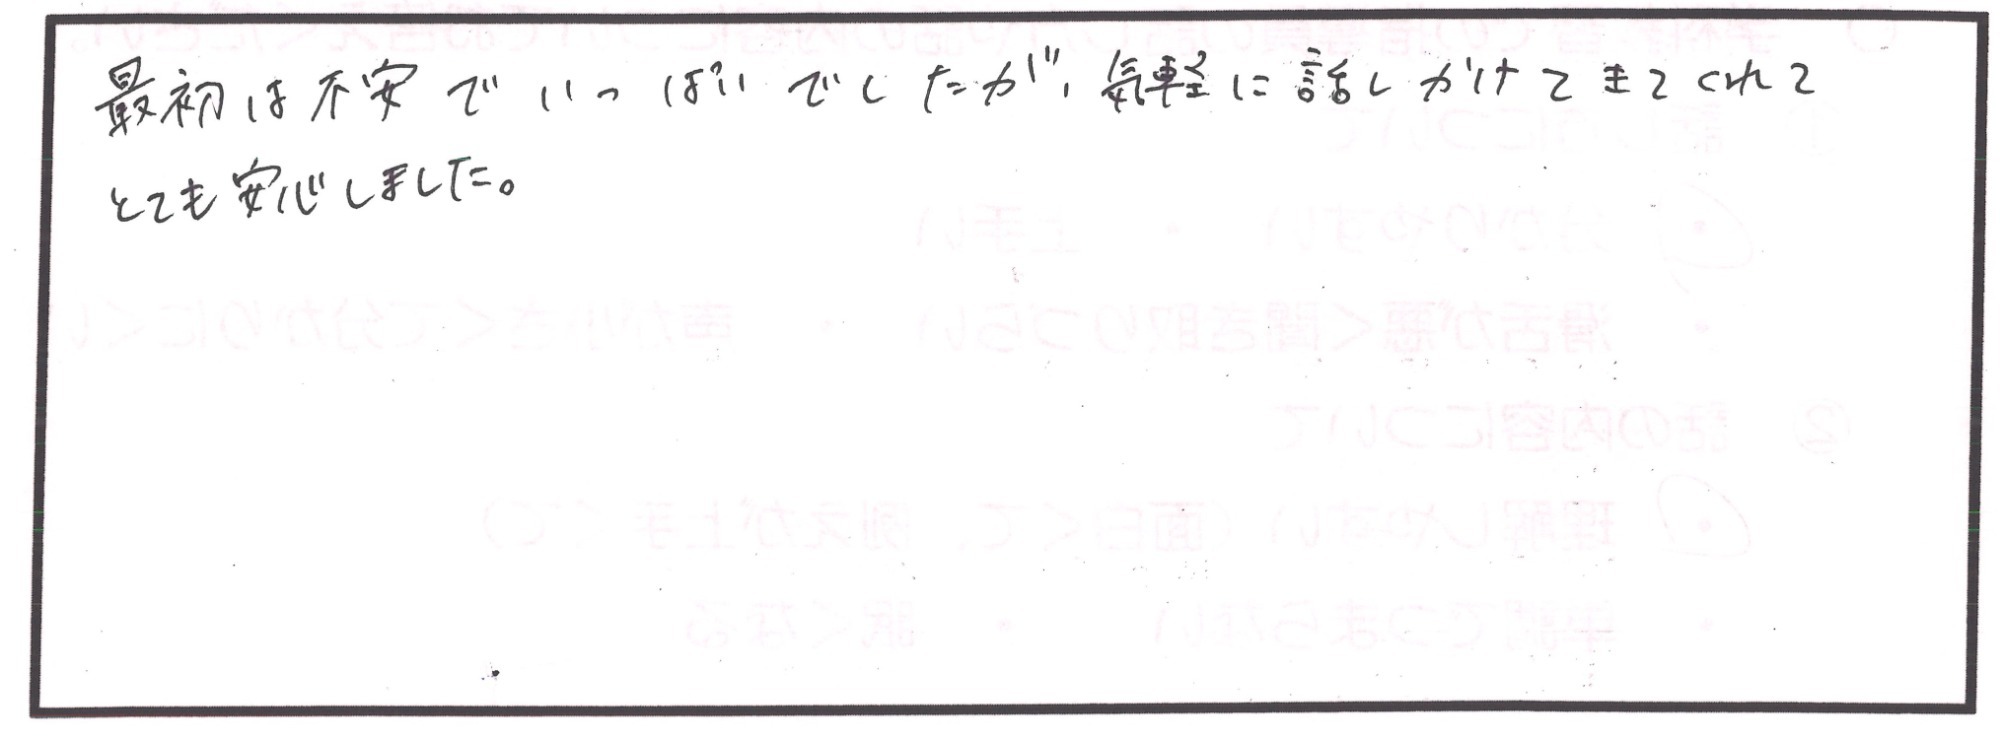 最初は不安でいっぱいでしたが、気軽に話しかけてきてくれて
とても安心しました。